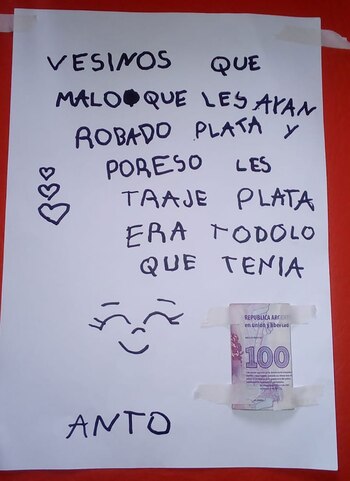 VESINOS QUE
MALO QUE LES AYAN
ROBADO PLATA Y
PORESO LES
TRAJE PLATA
ERA TODOLO
QUE TENIA
REPUBLICA
en unión y libertad
100
ANTO